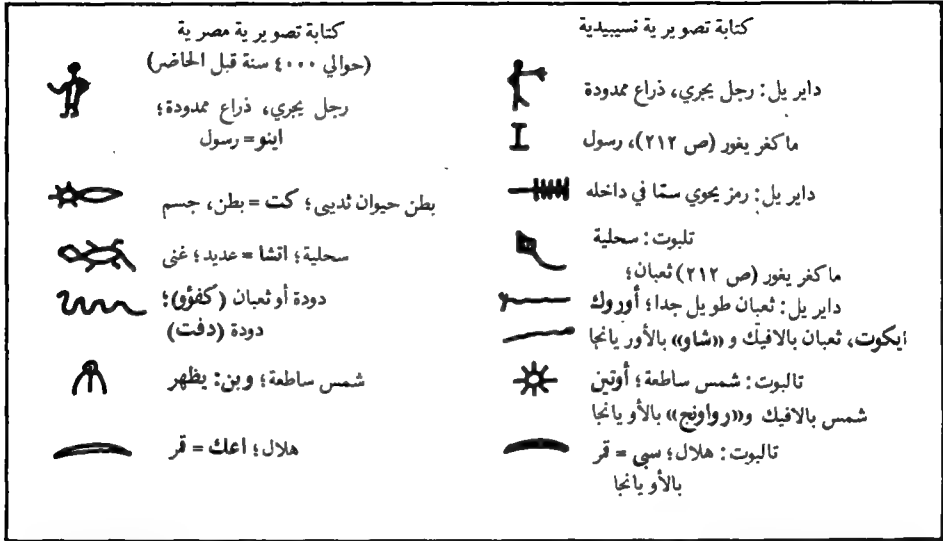 كتابة تصويرية نسيبيدية
دايريل: رجل يجري، ذراع ممدودة
ماكغريغور (ص ٢١٢)، رسول
دايريل: رمز يحوي سمّا في داخله
تلبوت: سحلية
ماكغريغور (ص ٢١٢) ثعبان؛
دايريل: ثعبان طويل جدا؛ أوروك
ايكوت، ثعبان بالافيك و «شاو» بالأوريانجا
تالبوت: شمس ساطعة؛ أوتين
شمس بالافيك و«رواونج» بالأويانجا
تالبوت: هلال؛ سبي = قر
بالأويانجا
كتابة تصويرية مصرية
(حوالي ٤٠٠٠ سنة قبل الحاضر)
رجل يجري، ذراع ممدودة؛
اينو = رسول
بطن حيوان ثديى؛ كت = بطن، جسم
سحلية؛ اتشا = عديد؛ غنى
دودة أو ثعبان (كفؤو)؛
دودة (دفت)
شمس ساطعة؛ وبن: يظهر
هلال؛ اعك = قر